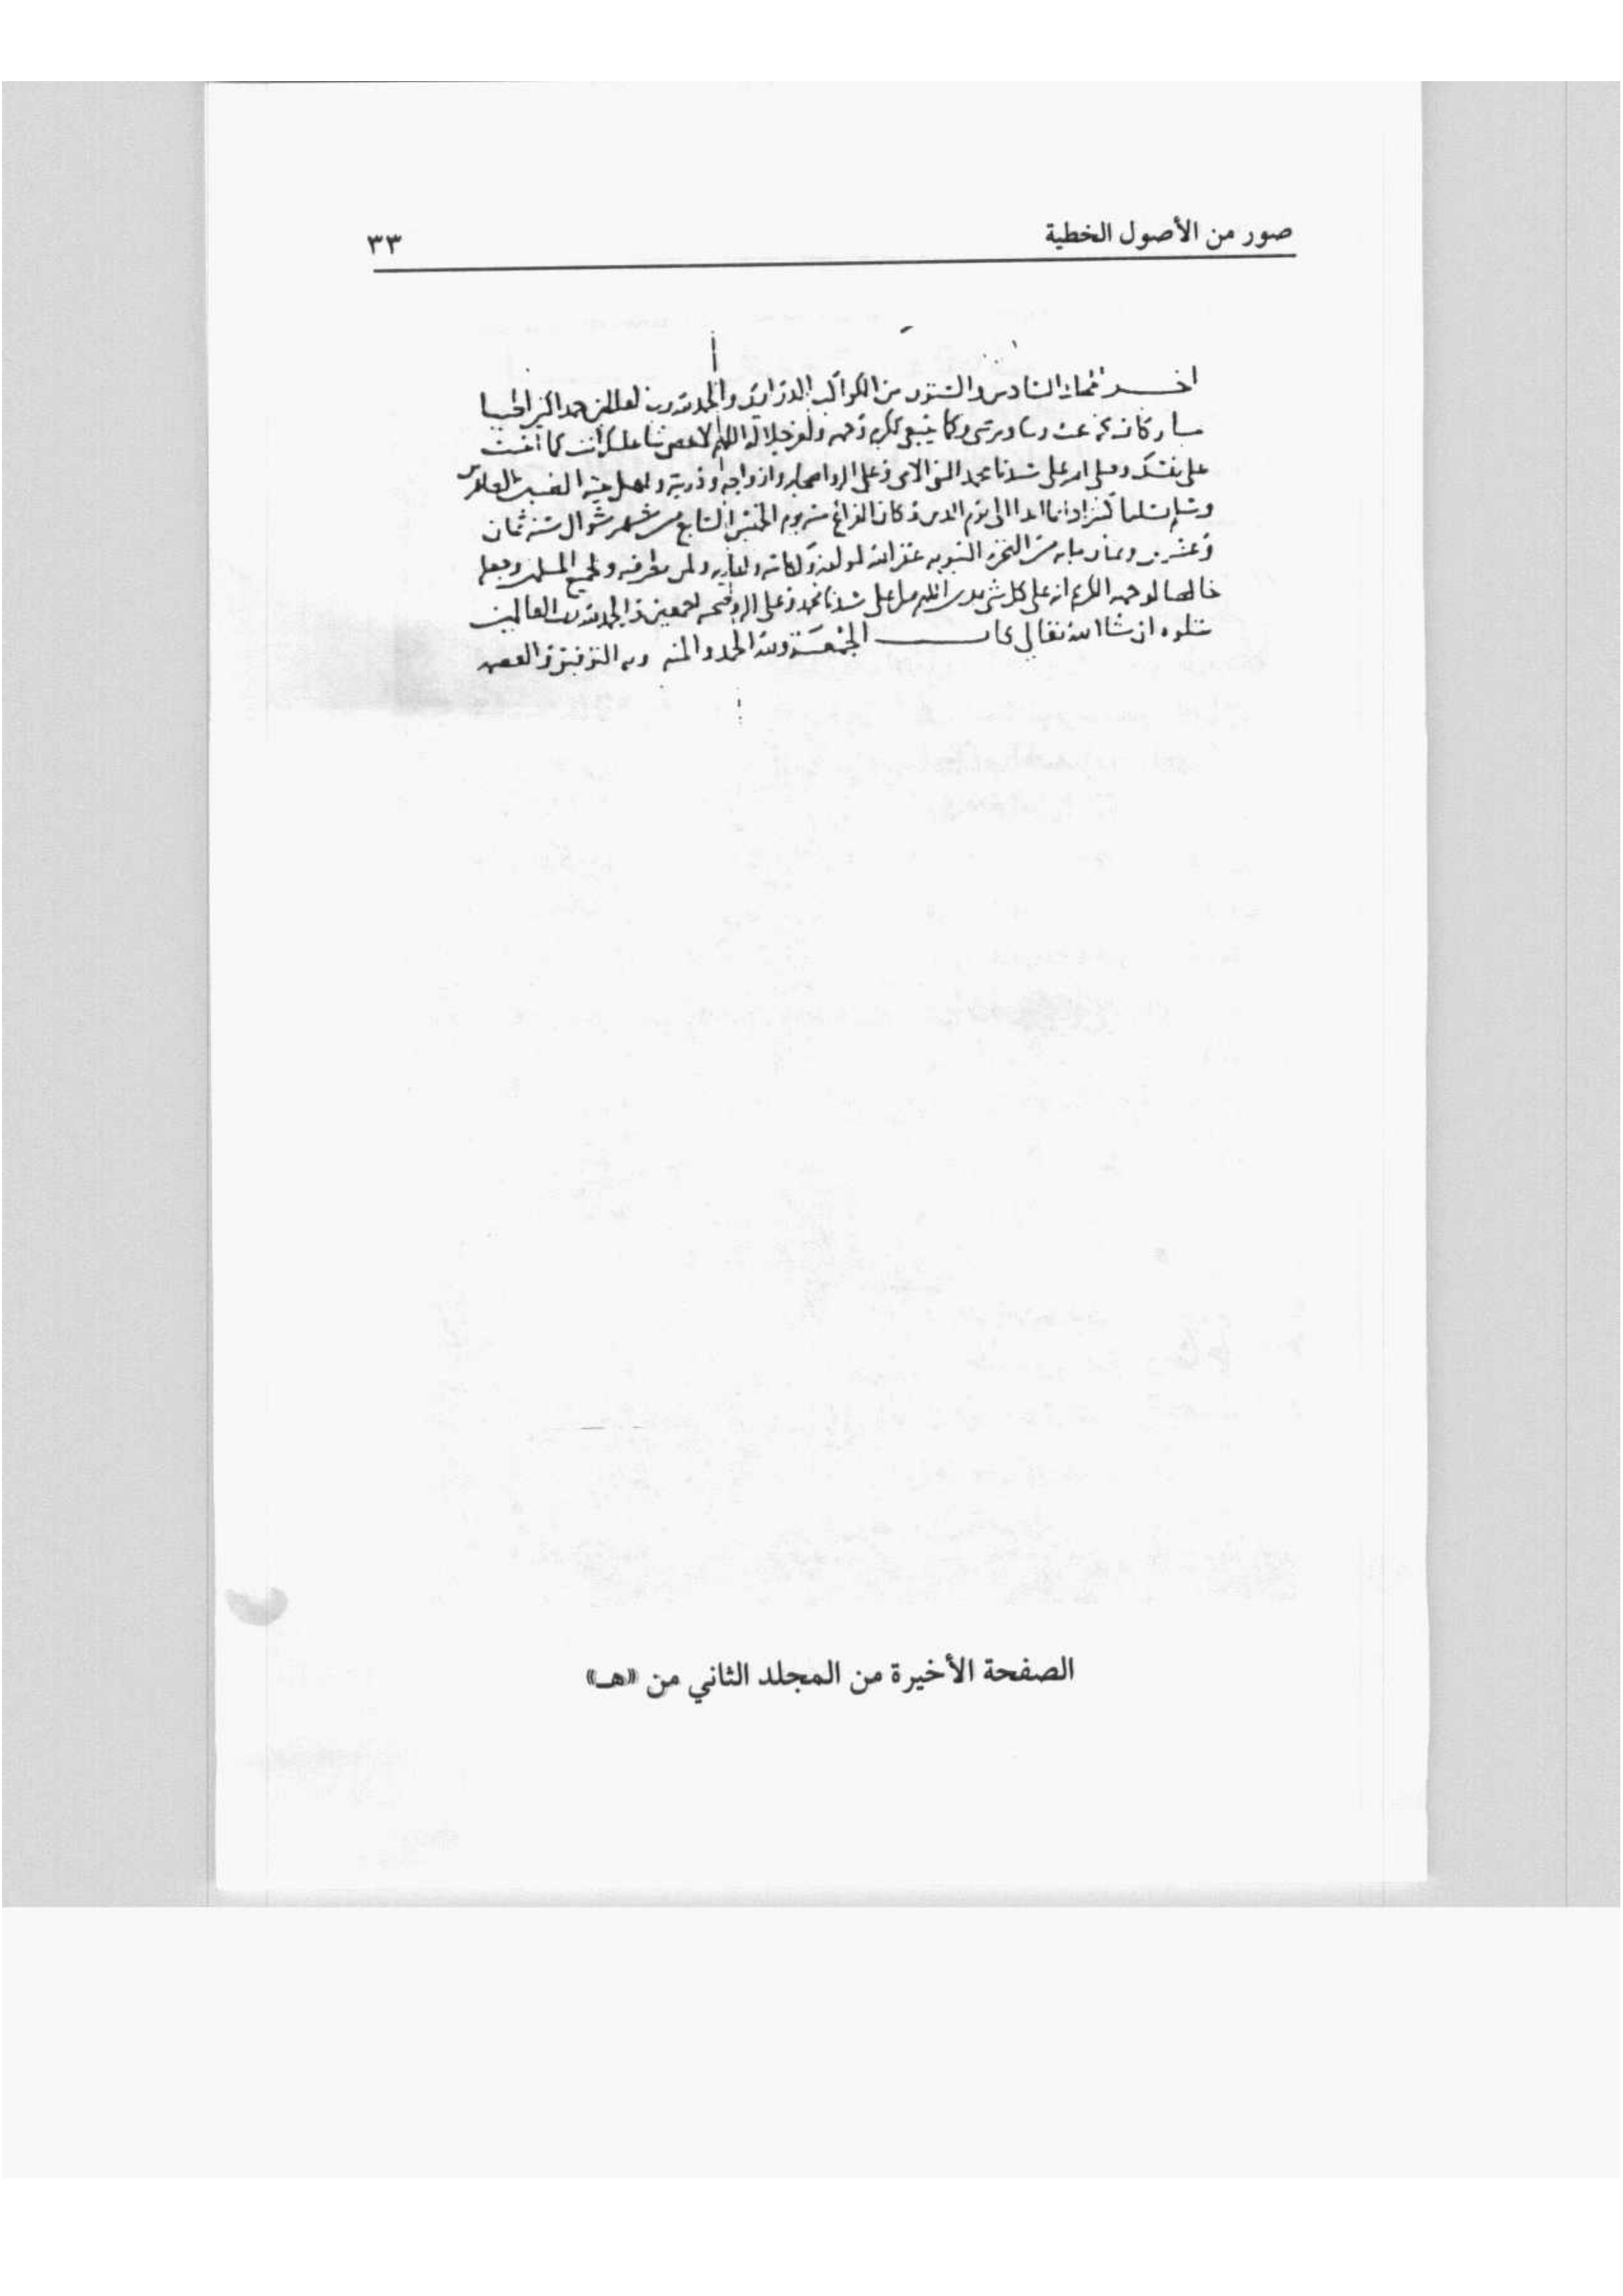 صور من الأصول الخطية ٣٣
اخر المجلد السادس والستون من الكواكب الدراري والحمد لله رب العالمين حمدا كثيرا طيبا
مباركا فيه كما يحب ربنا ويرضى وكما ينبغي لكرم وجهه وعز جلاله اللهم لا نحصي ثنا عليك انت كما اثنيت
على نفسك وصلى الله على سيدنا محمد النبي الامي وعلى اله واصحابه وازواجه وذريته واهل بيته الطيبين الطاهرين
وسلم تسليما كثيرا دائما ابدا الى يوم الدين وكان الفراغ منه يوم الخميس السابع من شهر شوال سنة ثمان
وعشرين وثمان مايه من الهجرة النبويه غفر الله لمولفه ولكاتبه ولقاريه ولمن نظر فيه ولجميع المسلمين وجعله
خالصا لوجهه الكريم انه على كل شي قدير اللهم صل على سيدنا محمد وعلى اله وصحبه اجمعين والحمد لله رب العالمين
يتلوه ان شا الله تعالى باب الجمعة ولله الحمد والمنه وبه التوفيق والعصمه
الصفحة الأخيرة من المجلد الثاني من «هـ»